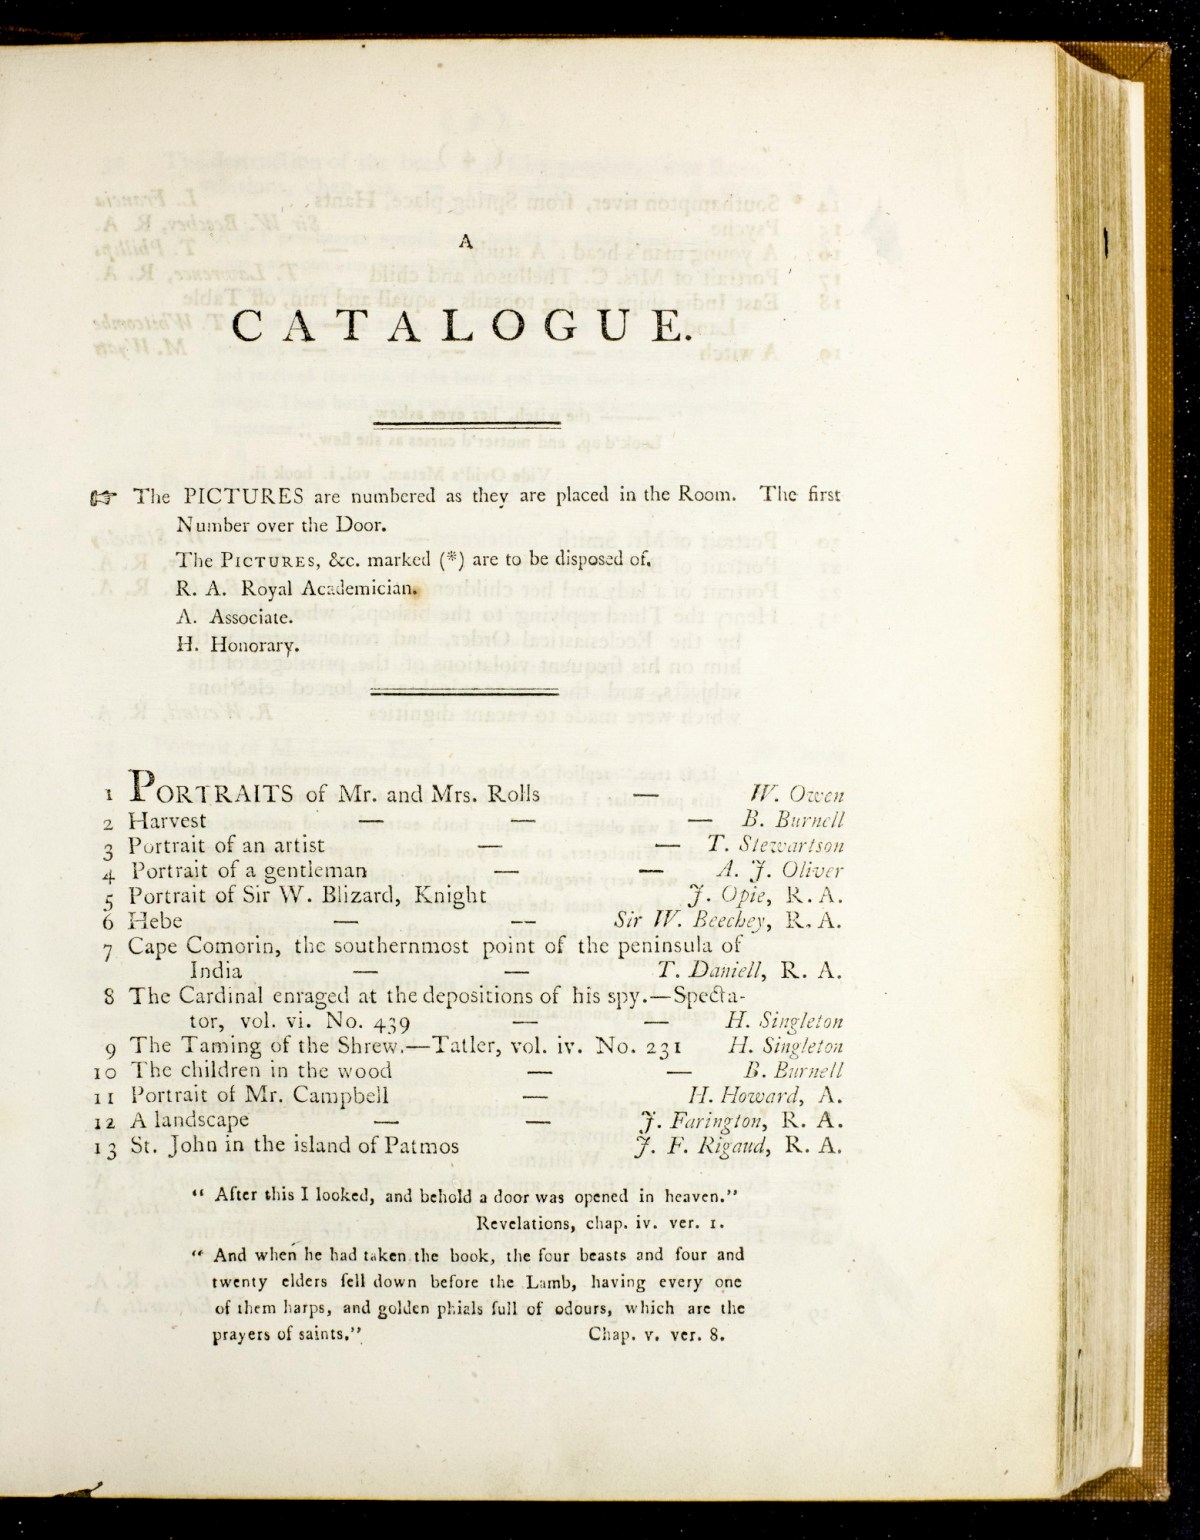 A
CATALOGUE.
☞ The PICTURES are numbered as they are placed in the Room. The first
Number over the Door.
The PICTURES, &c. marked (*) are to be disposed of.
R. A. Royal Academician.
A. Associate.
H. Honorary.
1 PORTRAITS of Mr. and Mrs. Rolls — W. Owen
2 Harvest — — — B. Burnell
3 Portrait of an artist — — T. Stewartson
4 Portrait of a gentleman — — A. J. Oliver
5 Portrait of Sir W. Blizard, Knight J. Opie, R. A.
6 Hebe — — Sir W. Beechey, R. A.
7 Cape Comorin, the southernmost point of the peninsula of
India — — T. Daniell, R. A.
8 The Cardinal enraged at the depositions of his spy.—Specta-
tor, vol. vi. No. 439 — — H. Singleton
9 The Taming of the Shrew.—Tatler, vol. iv. No. 231 H. Singleton
10 The children in the wood — — B. Burnell
11 Portrait of Mr. Campbell — H. Howard, A.
12 A landscape — — J. Farington, R. A.
13 St. John in the island of Patmos J. F. Rigaud, R. A.
“ After this I looked, and behold a door was opened in heaven.”
Revelations, chap. iv. ver. 1.
“ And when he had taken the book, the four beasts and four and
twenty elders fell down before the Lamb, having every one
of them harps, and golden phials full of odours, which are the
prayers of saints.” Chap. v. ver. 8.